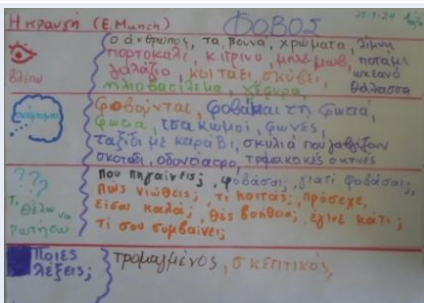 Η κραυγή (E. Munch) ΦΟΒΟΣ
ο άνθρωπος, τα βουνά, χρώματα, λίμνη
πορτοκαλί, κίτρινο, μπλε, μωβ, ποτάμι
γαλάζιο, κοιτάει, σκύβει, ωκεανό
ηλιοβασίλεμα, γέφυρα, θάλασσα
βλέπω
σκέφτομαι
φοβούνται, φοβάμαι τη φωτιά,
τσακωμοί, φωνές,
ταξίδι με καράβι, σκυλιά που γαβγίζουν
σκοτάδι, οδοντίατρο,
???
Τι θέλω να ρωτήσω
που πηγαίνεις; φοβάσαι, γιατί φοβάσαι;
πώς νιώθεις; τι κοιτάς; πρόσεχε,
είσαι καλά; θες βοήθεια; έγινε κάτι;
τι σου συμβαίνει;
Ποιες λέξεις;
τρομαγμένος, σκεπτικός,